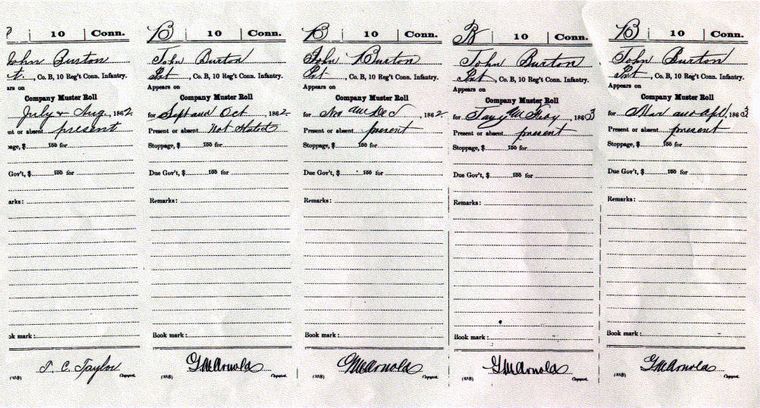 10 | Conn.
John Burton
, Co. B, 10 Reg't Conn. Infantry.
Company Muster Roll
July & Aug, 1862
present
$ 100 for
Gov't, $ 100 for
Book mark:
T. C. Taylor
(858) Copyist.
B | 10 | Conn.
John Burton
Pvt, Co. B, 10 Reg't Conn. Infantry.
Appears on
Company Muster Roll
for Sept and Oct, 1862
Present or absent Not Stated
Stoppage, $ 100 for
Due Gov't, $ 100 for
Remarks:
Book mark:
G M Arnold
(858) Copyist.
B | 10 | Conn.
John Burton
Pvt, Co. B, 10 Reg't Conn. Infantry.
Appears on
Company Muster Roll
for Nov and Dec, 1862
Present or absent present
Stoppage, $ 100 for
Due Gov't, $ 100 for
Remarks:
Book mark:
G M Arnold
(858) Copyist.
B | 10 | Conn.
John Burton
Pvt, Co. B, 10 Reg't Conn. Infantry.
Appears on
Company Muster Roll
for Jany & Feby, 1863
Present or absent present
Stoppage, $ 100 for
Due Gov't, $ 100 for
Remarks:
Book mark:
G M Arnold
(858) Copyist.
B | 10 | Conn.
John Burton
Pvt, Co. B, 10 Reg't Conn. Infantry.
Appears on
Company Muster Roll
for Mar and Apl, 1863
Present or absent present
Stoppage, $ 100 for
Due Gov't, $ 100 for
Remarks:
Book mark:
G M Arnold
(858) Copyist.